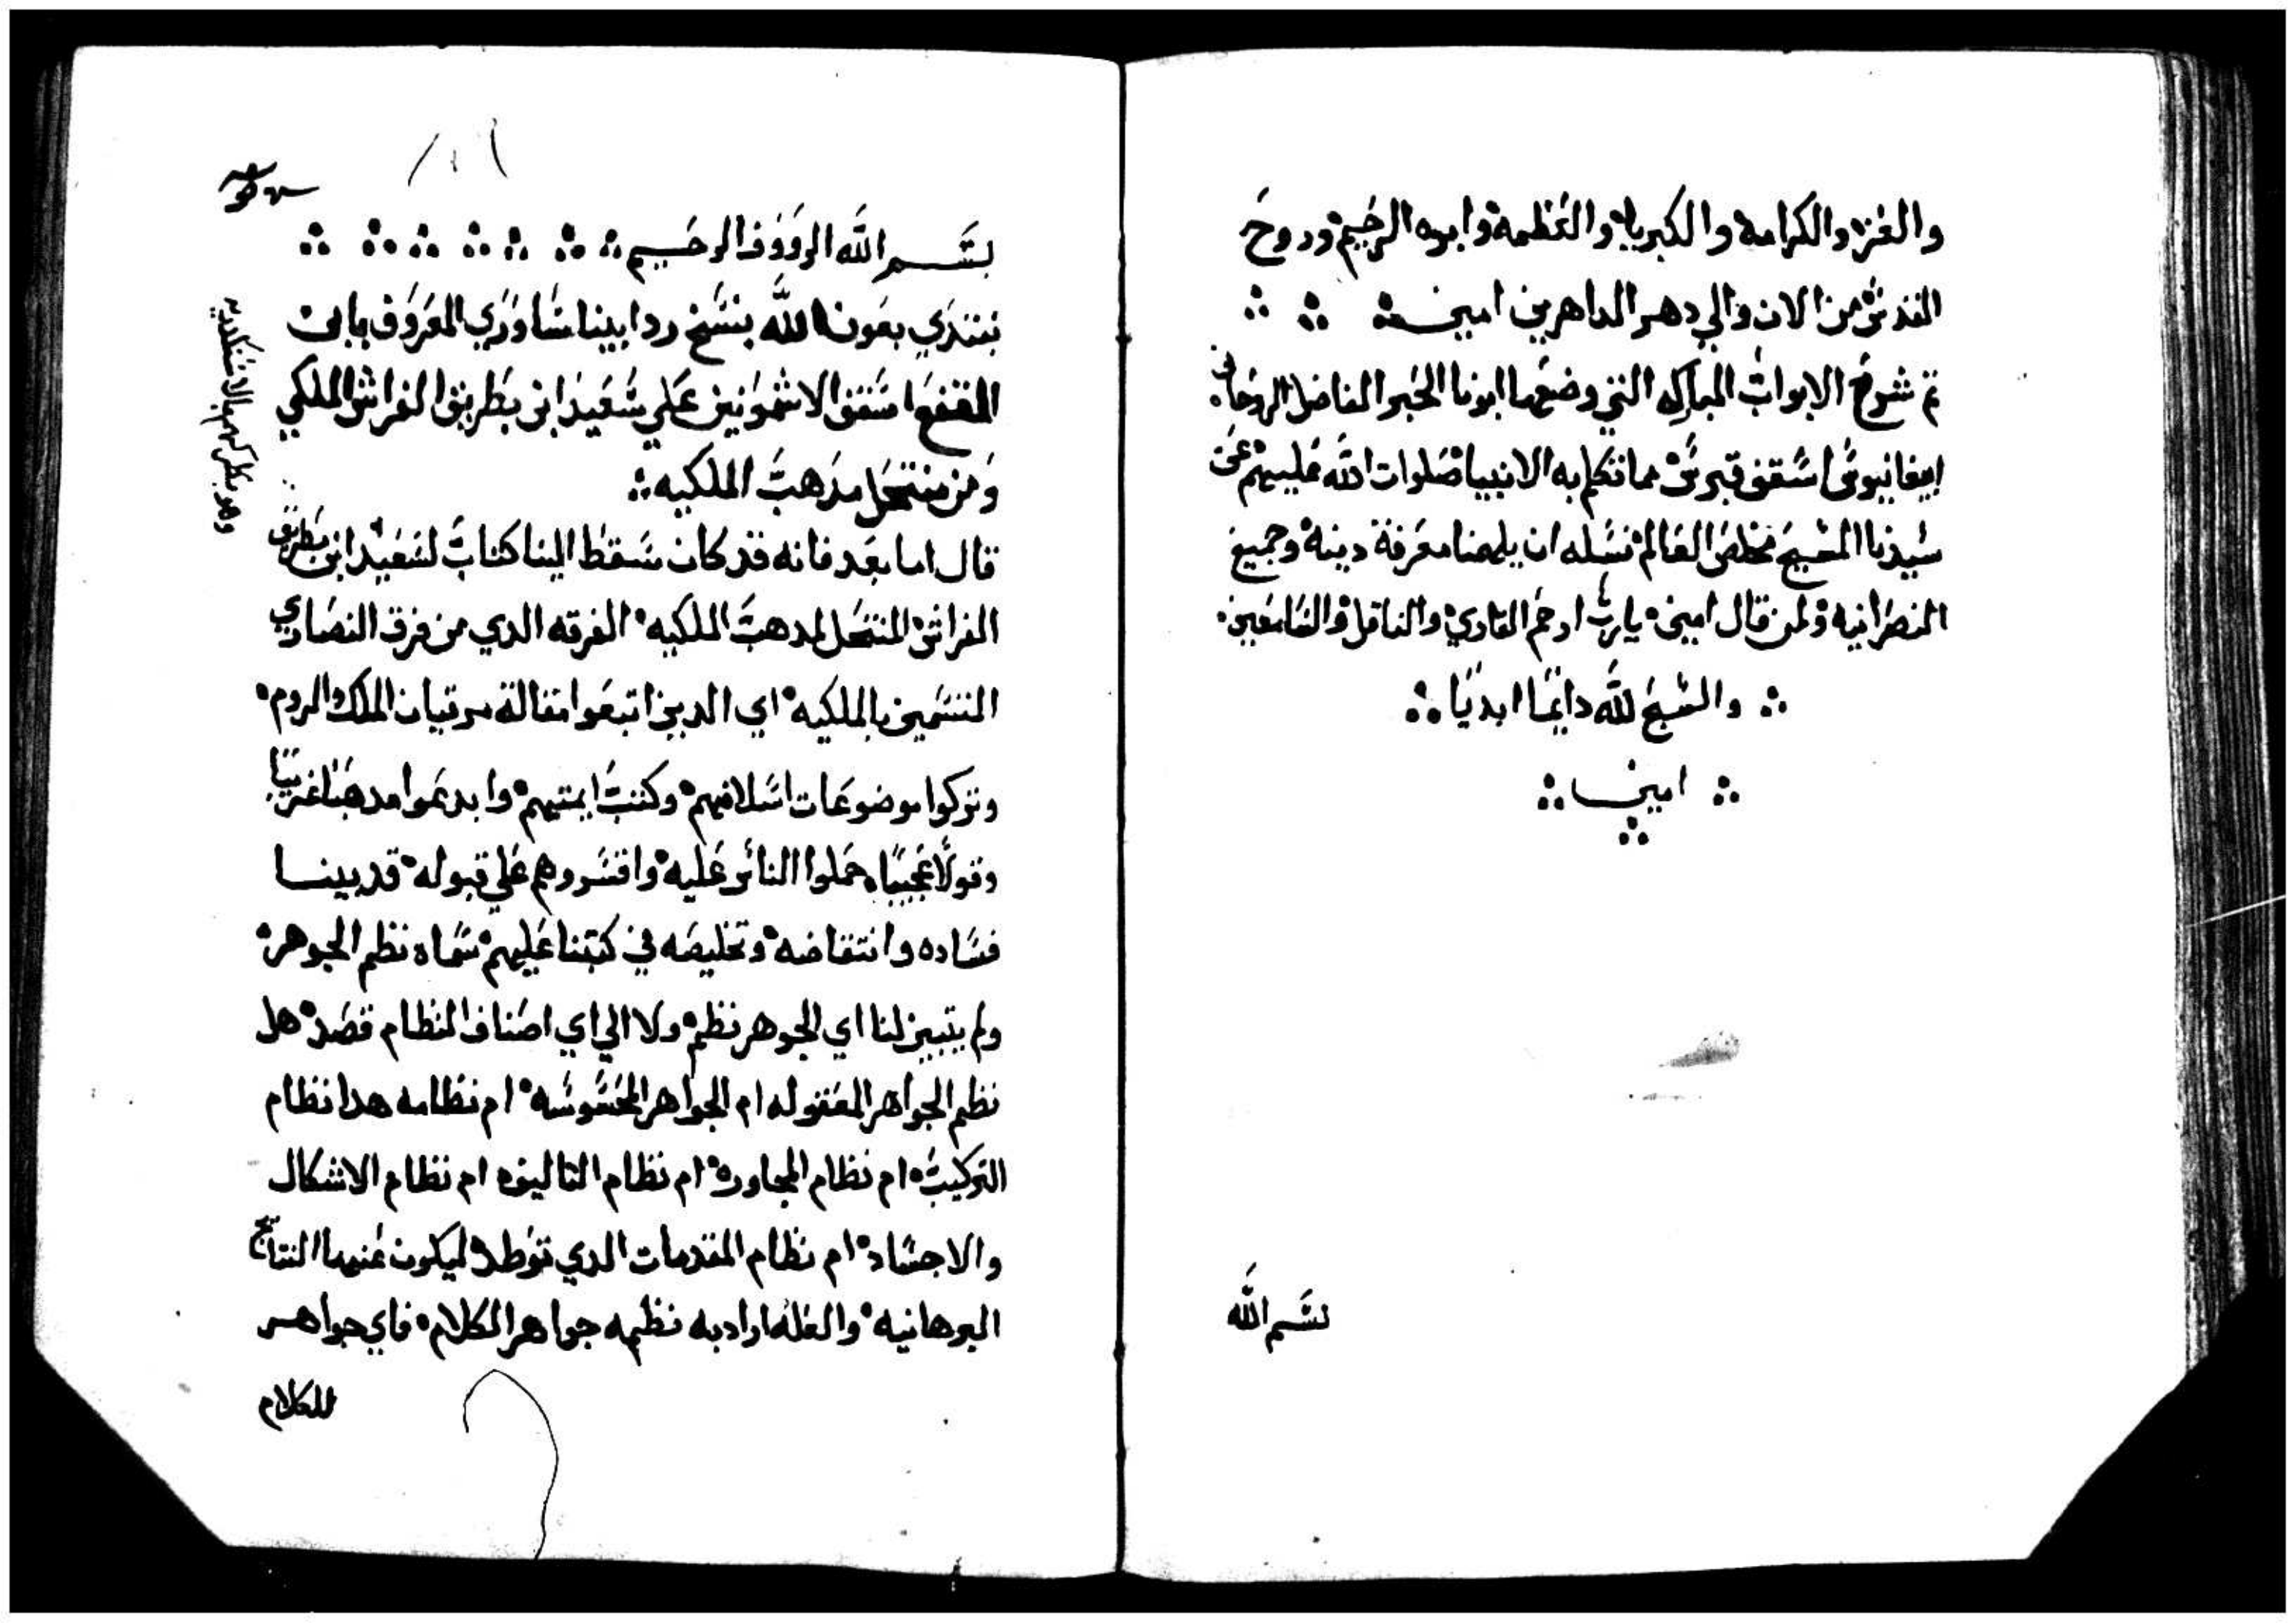 والعزه والكرامه والكبريا والعظمه وابوه الرحيم وروح
القدس من الان والي دهر الداهرين امين
تم شرح الابواب المباركه التي وضعها ابونا الحبر الفاضل الروحاني
ابيفانيوس اسقف قبرس مما تكلم به الانبيا صلوات الله عليهم عن
سيدنا المسيح مخلص العالم نسله ان يلهمنا معرفة دينه وجميع
النصرانيه ولمن قال امين يارب ارحم القاري والناقل والسامعين
والسبح لله دايمًا ابديًا
امين
بسم الله
بسم الله الرووف الرحيم
نبتدي بعون الله بنسخ رد ابينا ساوري المعروف بابن
المقفع اسقف الاشمونين علي سعيد ابن بطريق الفراش الملكي
ومن منتحل مدهب الملكيه
قال اما بعد فانه قد كان سقط الينا كتاب لسعيد ابن بطريق
الفراش المنتحل لمدهب الملكيه الفرقه الدي من فرق النصاري
المتسمين بالملكيه اي الدين اتبعوا مقالة مرقيان الملك الروم
وتركوا موضوعات اسلافهم وكتب ايمتهم وابدعوا مدهبًا غريبًا
وقولًا عجيبًا حملوا الناس عليه واقسروهم علي قبوله قد بينا
فساده وانتقاضه وتخليصه في كتبنا عليهم سماه نظم الجوهر
ولم يتبين لنا اي الجوهر نظم ولا الي اي اصناف النظام قصد هل
نظم الجواهر المعقوله ام الجواهر المحسوسه ام نظامه هدا نظام
التركيب ام نظام المجاوره ام نظام التاليف ام نظام الاشكال
والاجساد ام نظام المقدمات الدي توطد ليكون عنها النتايج
البرهانيه والعله اراد به نظمه جواهر الكلام فاي جواهر
للكلام
وهو بطركهم بالاسكندريه